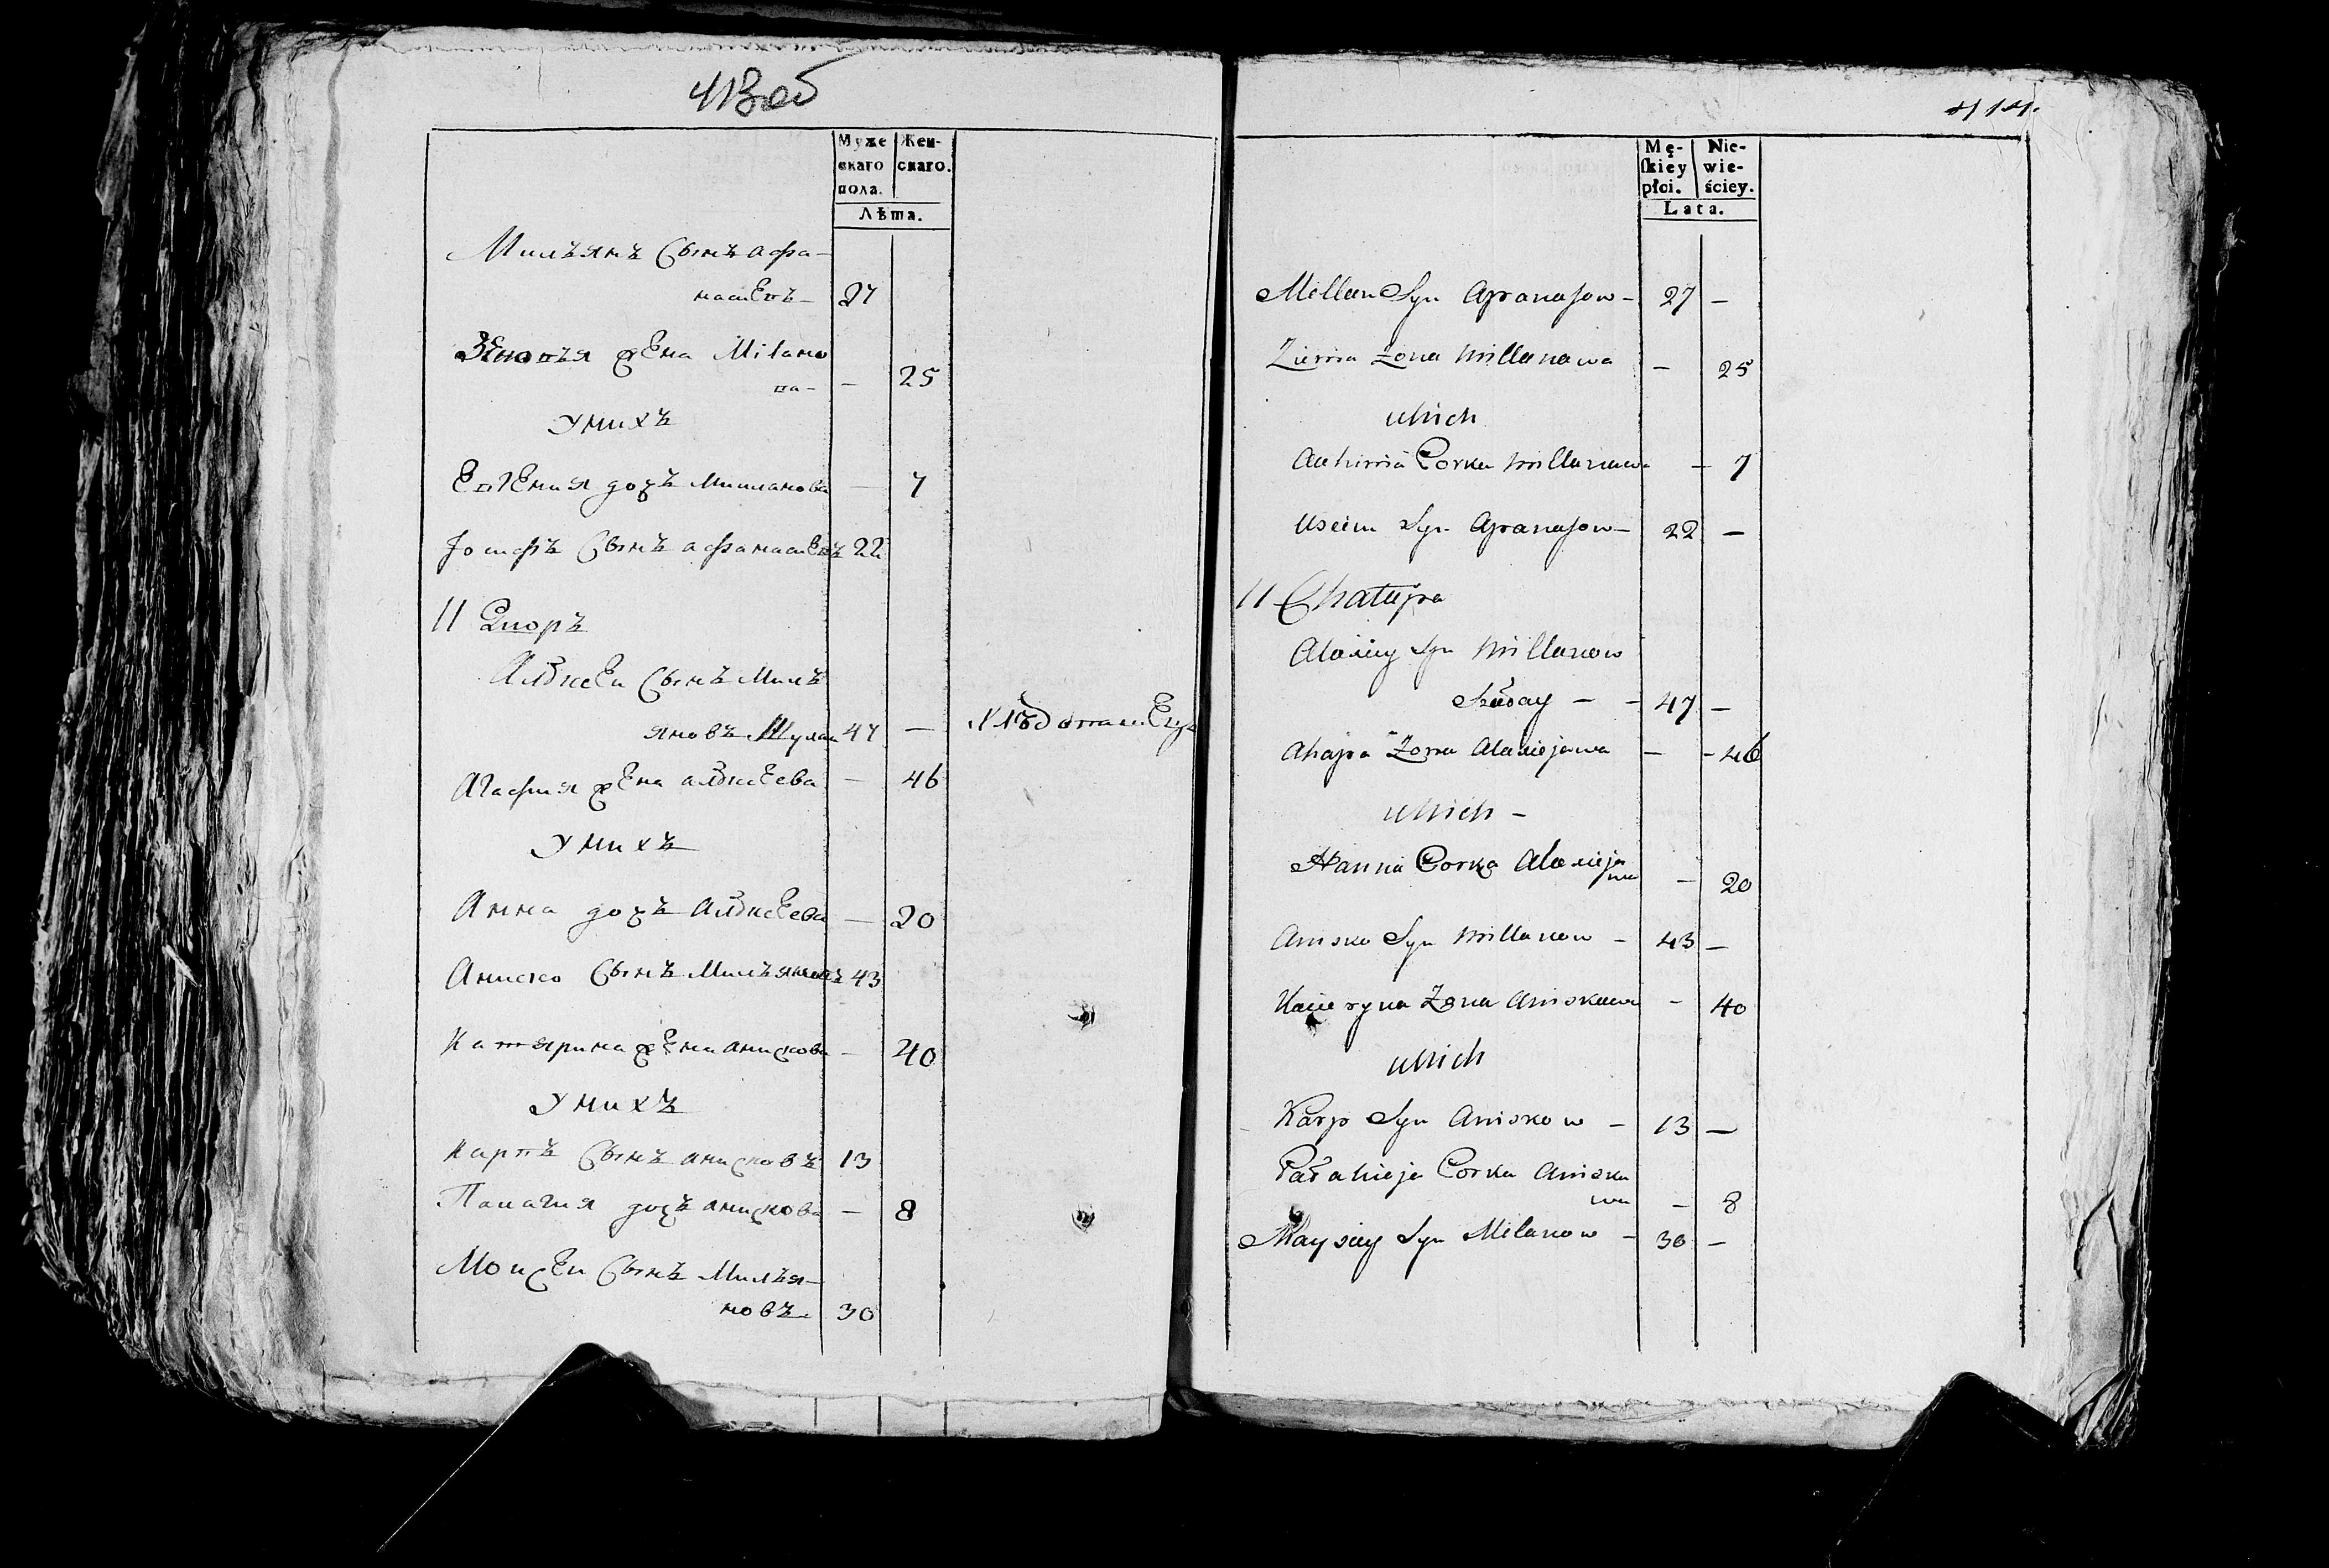 413 об
Муже Жен-
скаго скаго.
пола.
Лѣта.
Милъянъ Сынъ афа-
насиевъ - 27
Зѣновъя жена Milано
ва - - 25
У нихъ
Евгения дочь Миланова - 7
Іосифъ Сынъ афанасиевъ 22
11 Дворъ
Алѣксеи Сынъ Милъ
яновъ Шулаи 47 - Хлѣбопашецъ
Агафия жена алѣксеева - 46
У нихъ
Анна дочь Алѣксеева - 20
Аниско Сынъ Милъяновъ 43
Катярина жена анискова - 40
У нихъ
Карпъ Сынъ анисковъ 13
Палагия дочь анискова - 8
Моисеи Сынъ Милъя-
новъ 30
414.
Mę- Nie-
ſkiey wie-
płci. ściey.
Lata.
Millan Syn Apanasow - 27 -
Zona Millanowa - 25
uhich
Corka Millanowa - 7
Syn Apanasow - 22 -
11 Chatupa
Alaxiey Syn Millanow
- - 47 -
Ahapa Zona Alaxiejowa - - 46
uhich -
Hanna Corka Alaxieja
wa - 20
Anisko Syn Millanow - 43 -
Kacieryna Zona Aniskawa - 40
uhich
Karp Syn Aniskow - 13 -
Corka Aniska
wa - 8
Maysiey Syn Milanow - 30 -